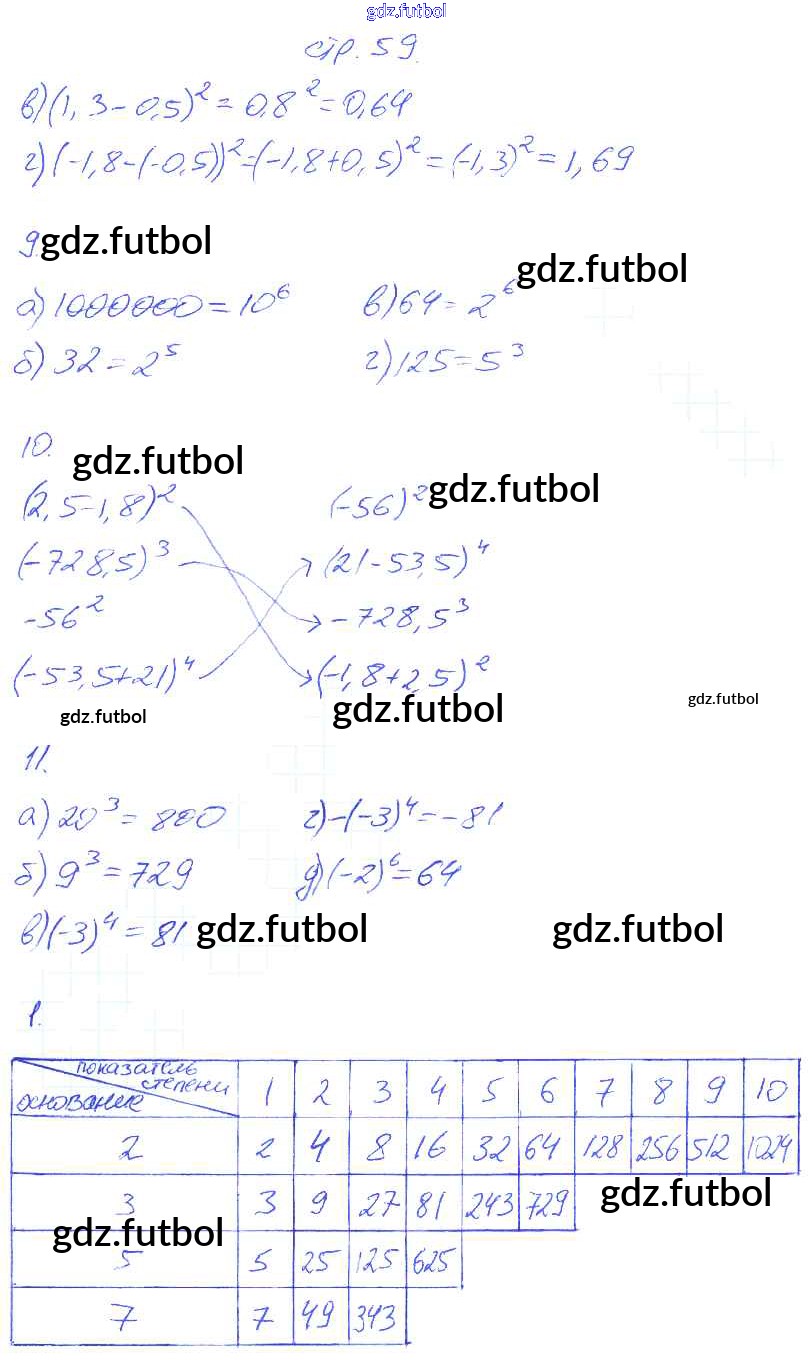 gdz.futbol
стр. 59.
в) (1,3-0,5)² = 0,8² = 0,64
г) (-1,8-(-0,5))² = (-1,8+0,5)² = (-1,3)² = 1,69
9. gdz.futbol
gdz.futbol
а) 1000000 = 10⁶ в) 64 = 2⁶
б) 32 = 2⁵ г) 125 = 5³
10.
gdz.futbol
gdz.futbol
(2,5-1,8)² (-56)²
(-728,5)³ (21-53,5)⁴
-56² -728,5³
(-53,5+21)⁴ (-1,8+2,5)²
gdz.futbol gdz.futbol gdz.futbol
11.
а) 20³ = 800 г) -(-3)⁴ = -81
б) 9³ = 729 д) (-2)⁶ = 64
в) (-3)⁴ = 81 gdz.futbol gdz.futbol
1.
показатель степени
основание 1 2 3 4 5 6 7 8 9 10
2 2 4 8 16 32 64 128 256 512 1024
3 3 9 27 81 243 729 gdz.futbol
gdz.futbol
5 5 25 125 625
7 7 49 343